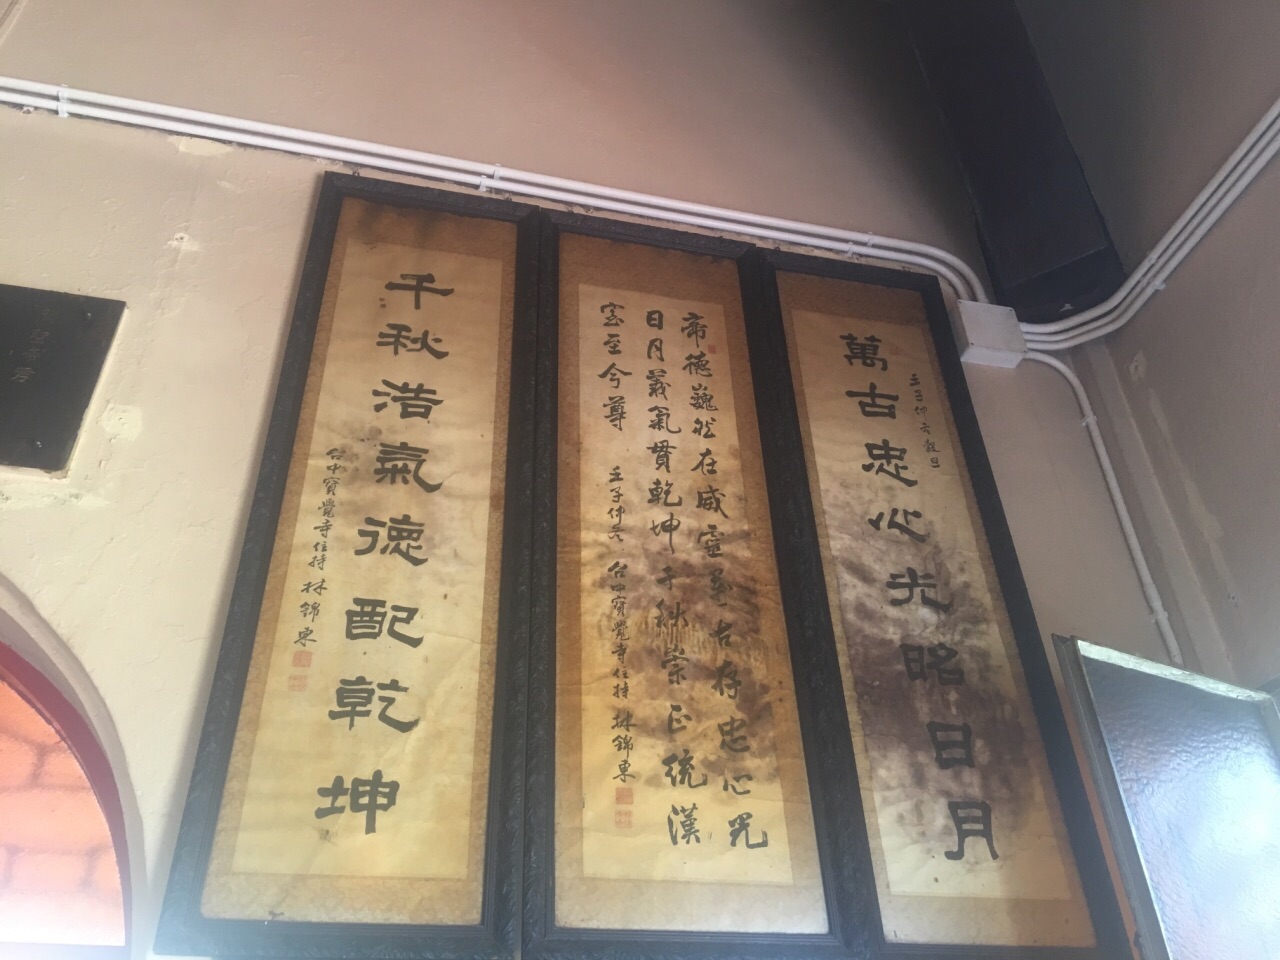 萬古忠心光昭日月
壬子仲冬穀旦
帝德巍然在威靈萬古存忠心光
日月義氣貫乾坤千秋崇正統漢
室至今尊
壬子仲冬 台中寶覺寺住持 林錦東
千秋浩氣德配乾坤
台中寶覺寺住持 林錦東